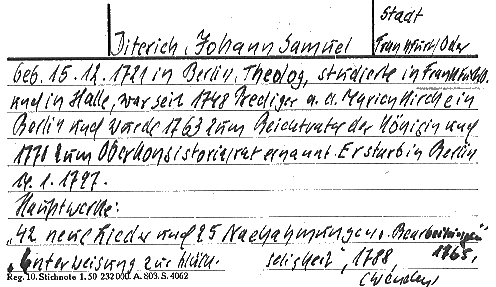 Stadt
Diterich, Johann Samuel Frankfurt/Oder
geb. 15.12.1721 in Berlin, Theolog, studierte in Frankfurt/O.
und in Halle, war seit 1748 Prediger a. d. Marienkirche in
Berlin und wurde 1763 zum Beichtvater der Königin und
1770 zum Oberkonsistorialrat ernannt. Er starb in Berlin
14.1.1797.
Hauptwerke:
"42 neue Lieder und 25 Nachahmungen, Bearbeitungen" 1765,
"Unterweisung zur seligkeit", 1788,
Reg. 10. Stichnote 1. 50 232 000. A. 803. S. 4062